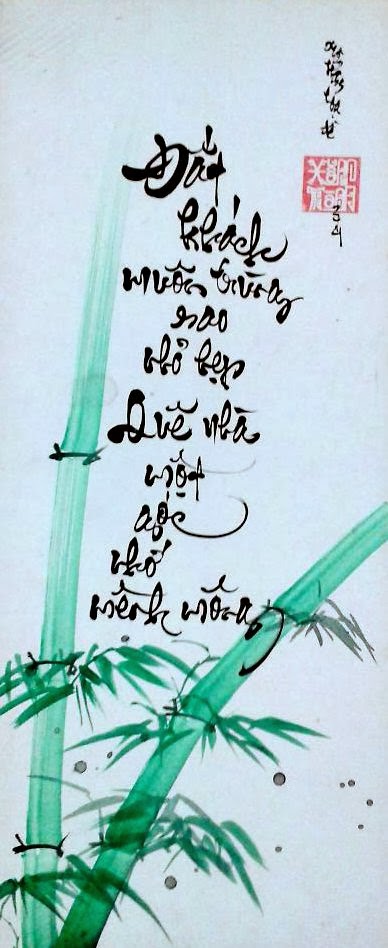 Đất
khách
muôn trùng
sao
nhỏ hẹp
Quê nhà
một
góc
nhớ
mênh mông